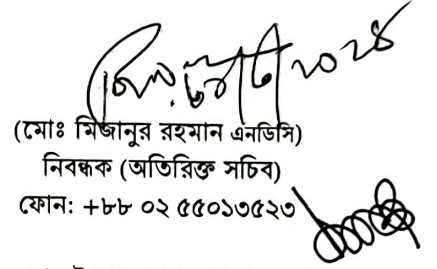 (মোঃ মিজানুর রহমান এনডিসি)
নিবন্ধক (অতিরিক্ত সচিব)
ফোন: +৮৮ ০২ ৫৫০১৩৫২৩